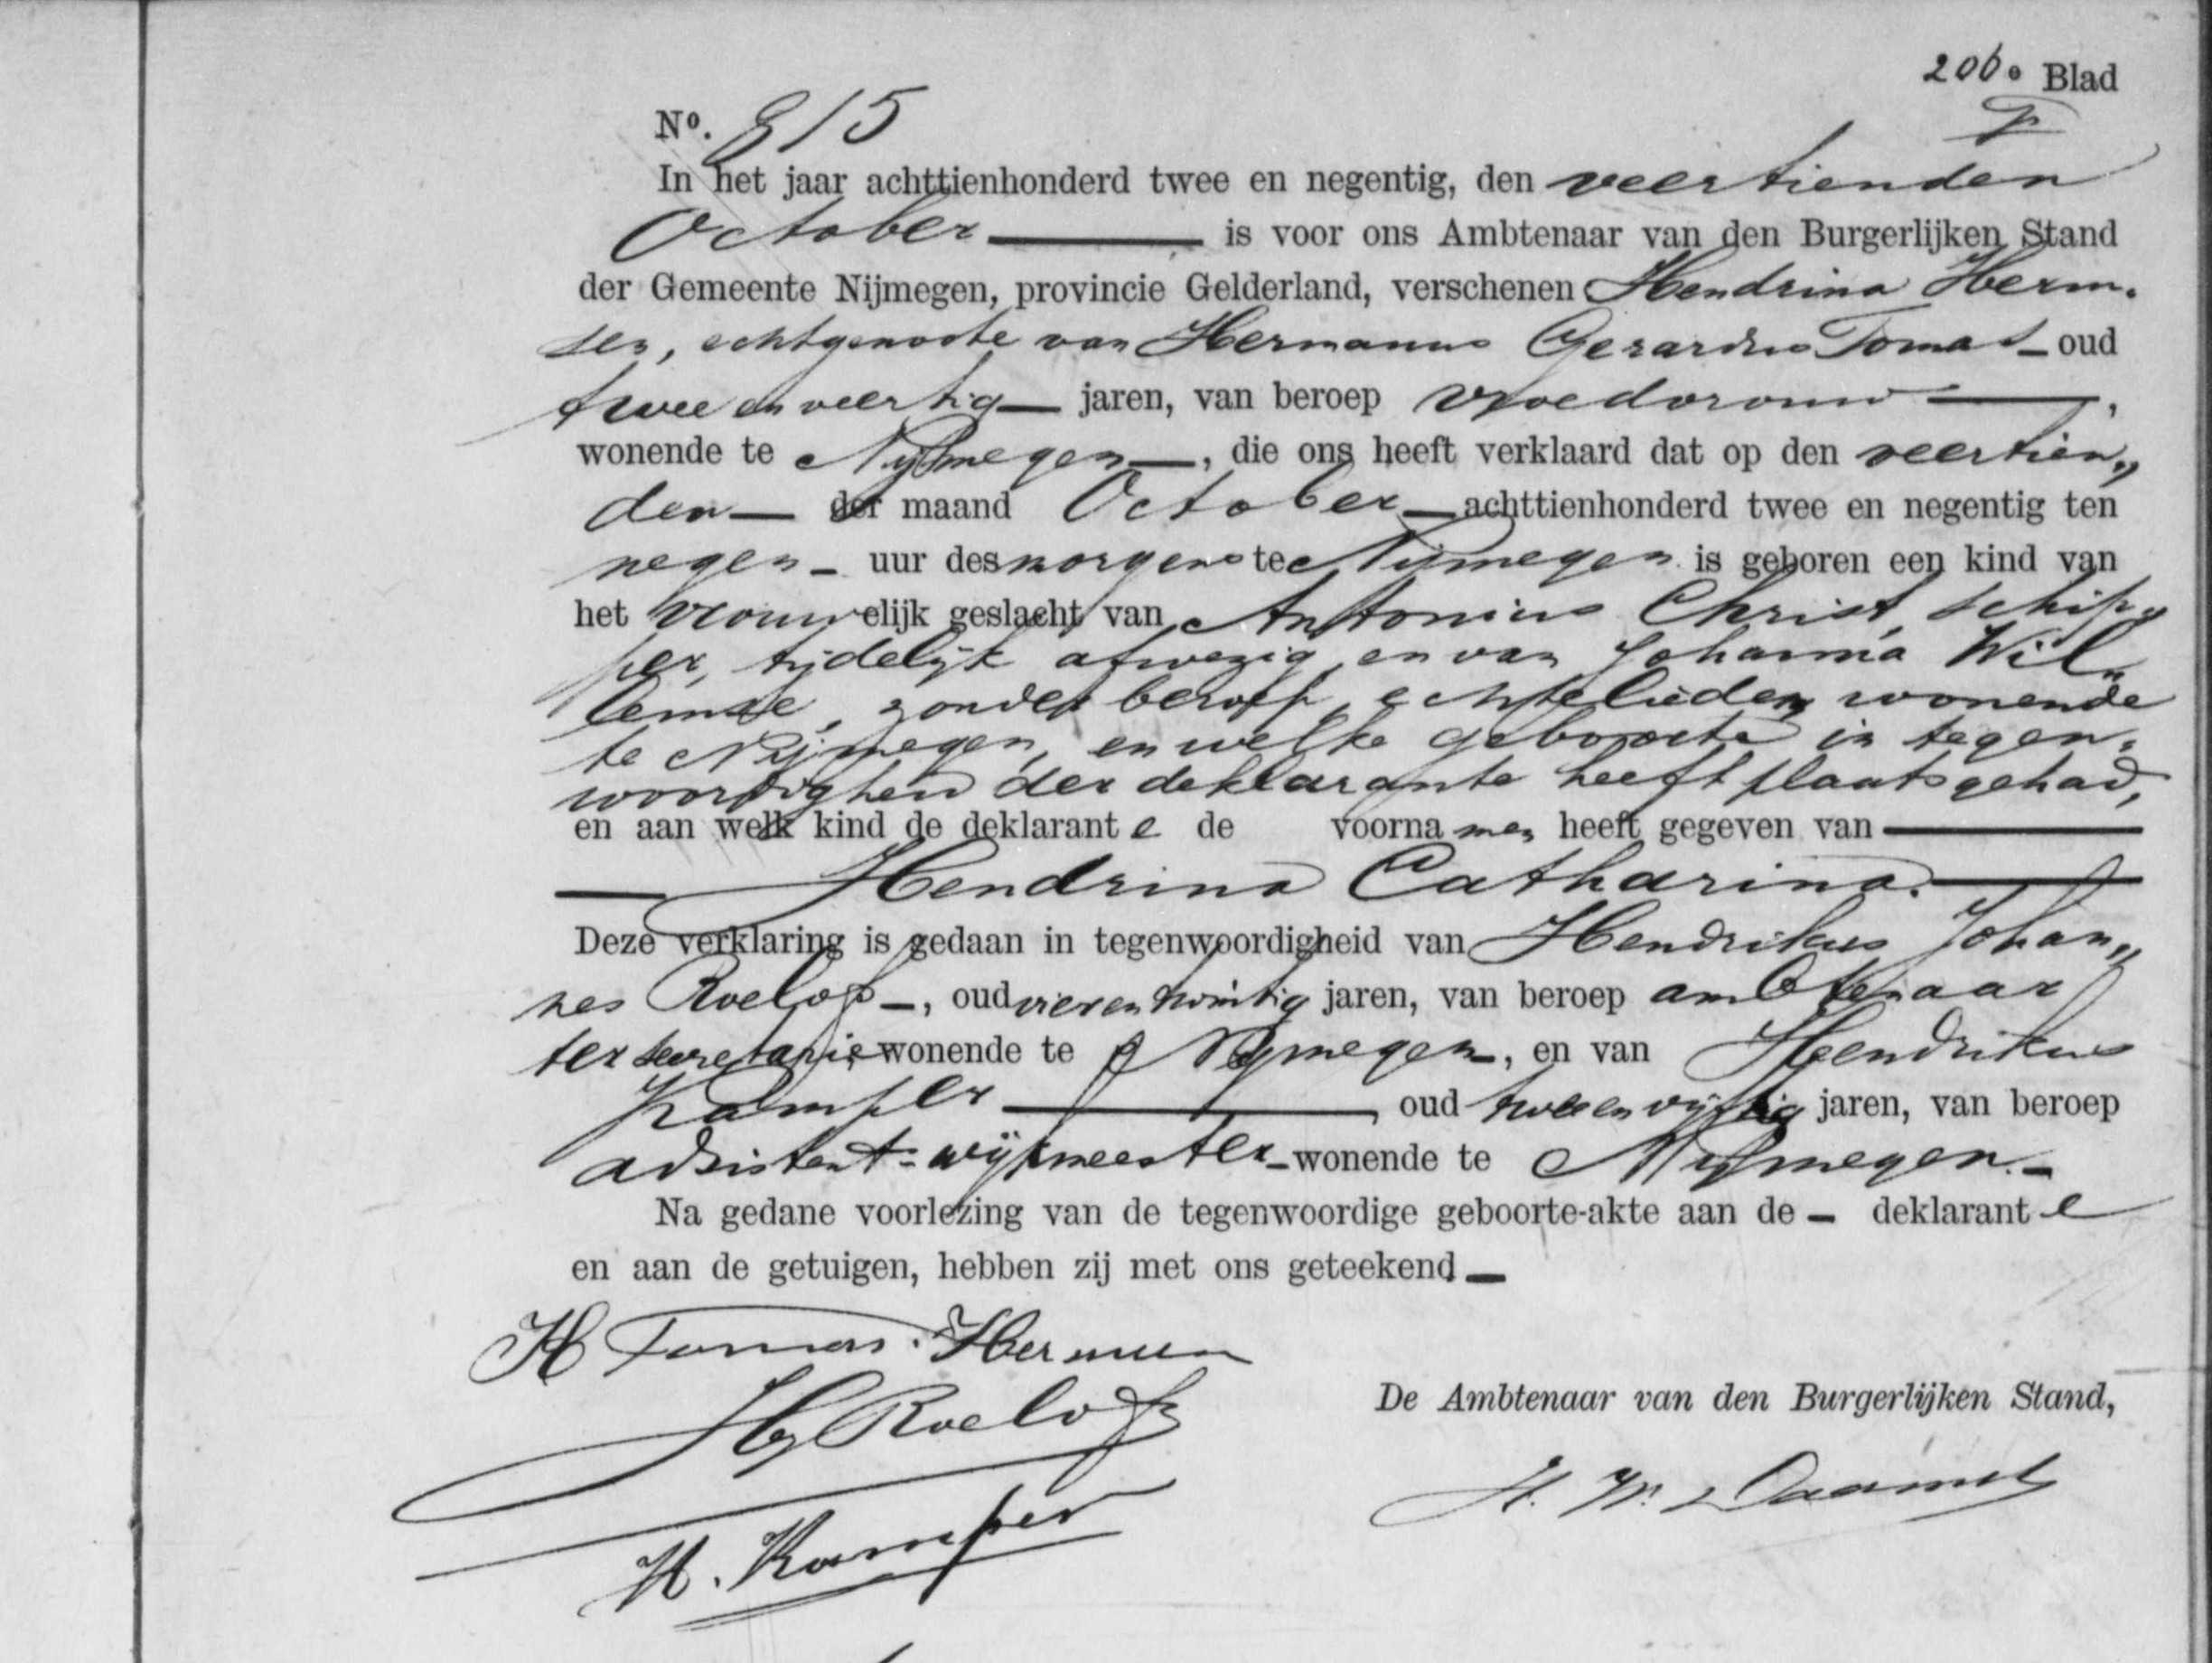 206e Blad
No. 815
In het jaar achttienhonderd twee en negentig, den veertienden
October — is voor ons Ambtenaar van den Burgerlijken Stand
der Gemeente Nijmegen, provincie Gelderland, verschenen Hendrina Herm-
sen, echtgenoote van Hermanus Gerardus Tomas — oud
twee en veertig — jaren, van beroep vroedvrouw —,
wonende te Nijmegen —, die ons heeft verklaard dat op den veertien„
den — der maand October — achttienhonderd twee en negentig ten
negen — uur des morgens te Nijmegen is geboren een kind van
het vrouwelijk geslacht van Antonius Christ, schip„
per, tijdelijk afwezig, en van Johanna Wil„
lemse, zonder beroep, echtelieden wonende
te Nijmegen, en welke geboorte in tegen„
woordigheid der deklarante heeft plaats gehad,
en aan welk kind de deklarante de voornamen heeft gegeven van —
— Hendrina Catharina. —
Deze verklaring is gedaan in tegenwoordigheid van Hendrikus Johan„
nes Roelofs —, oud vier en twintig jaren, van beroep ambtenaar
ter secretarie, wonende te Nijmegen —, en van Hendrikus
Kamper —, oud twee en vijftig jaren, van beroep
adsistent-wijkmeester — wonende te Nijmegen. —
Na gedane voorlezing van de tegenwoordige geboorte-akte aan de — deklarante
en aan de getuigen, hebben zij met ons geteekend —
H Tomas. Hermsen
HJ Roelofs
De Ambtenaar van den Burgerlijken Stand,
H. Kamper